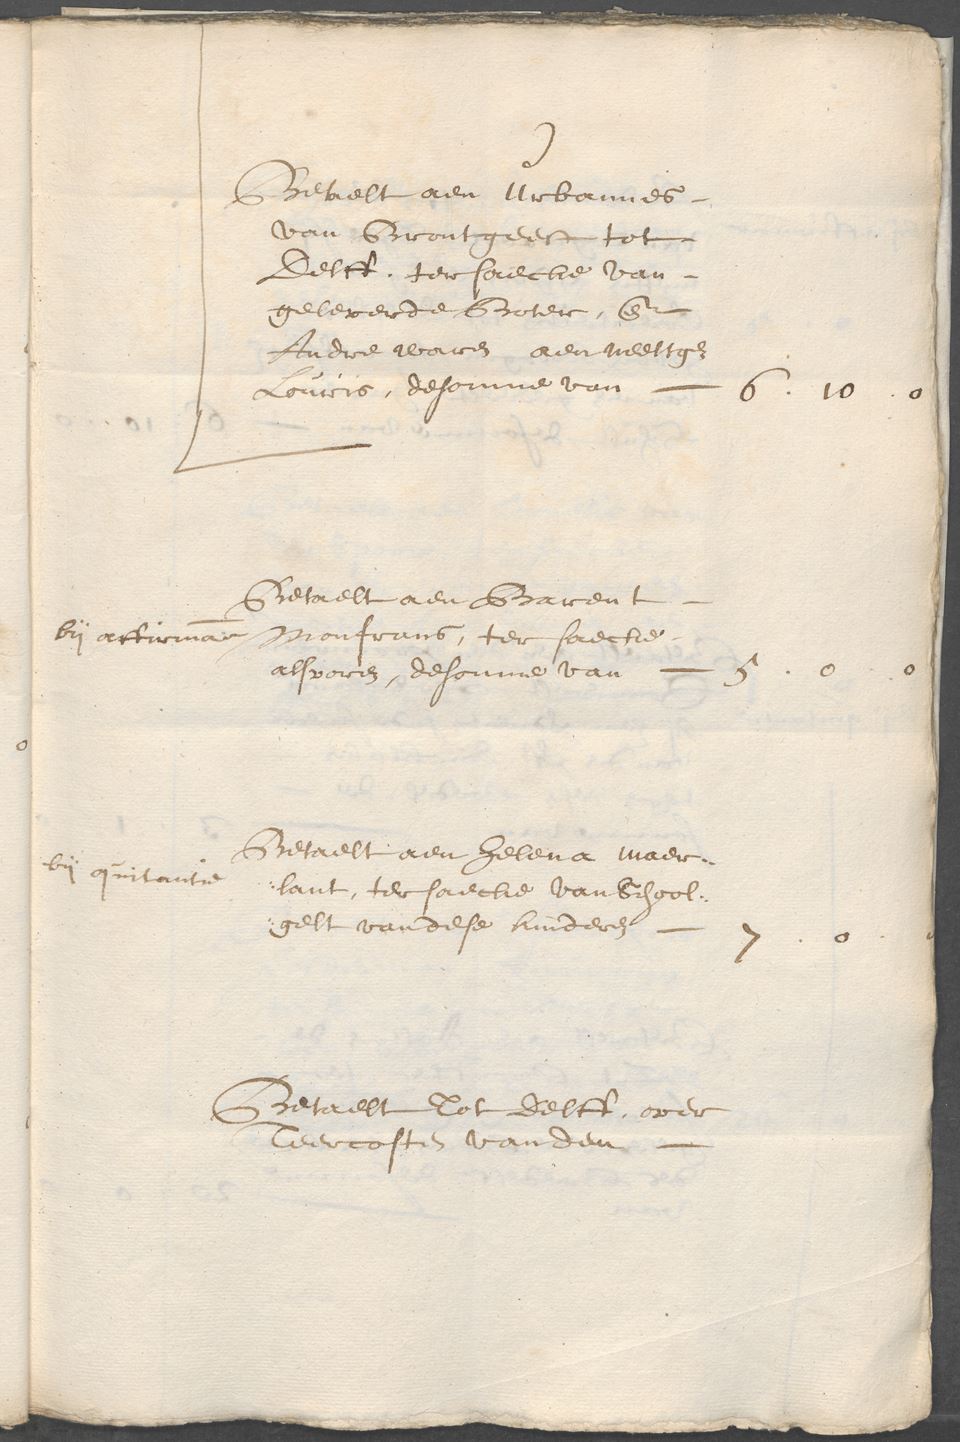 Betaelt aen Urbannes
van Brontgeest tot
Delff. ter saecke van
geleverde Boter, en
Andre waren aen Neeltgen
Louwris, de somme van — 6 . 10 . 0
Betaelt aen Barent
bij affirmatie Monfrans, ter saecke
alsvoren, de somme van — 5 . 0 . 0
Betaelt aen Helena Maer
bij quitantie lant, ter saecke van School
gelt van dese kinderen — 7 . 0 .
Betaelt Tot Delff. over
Teercosten van den —